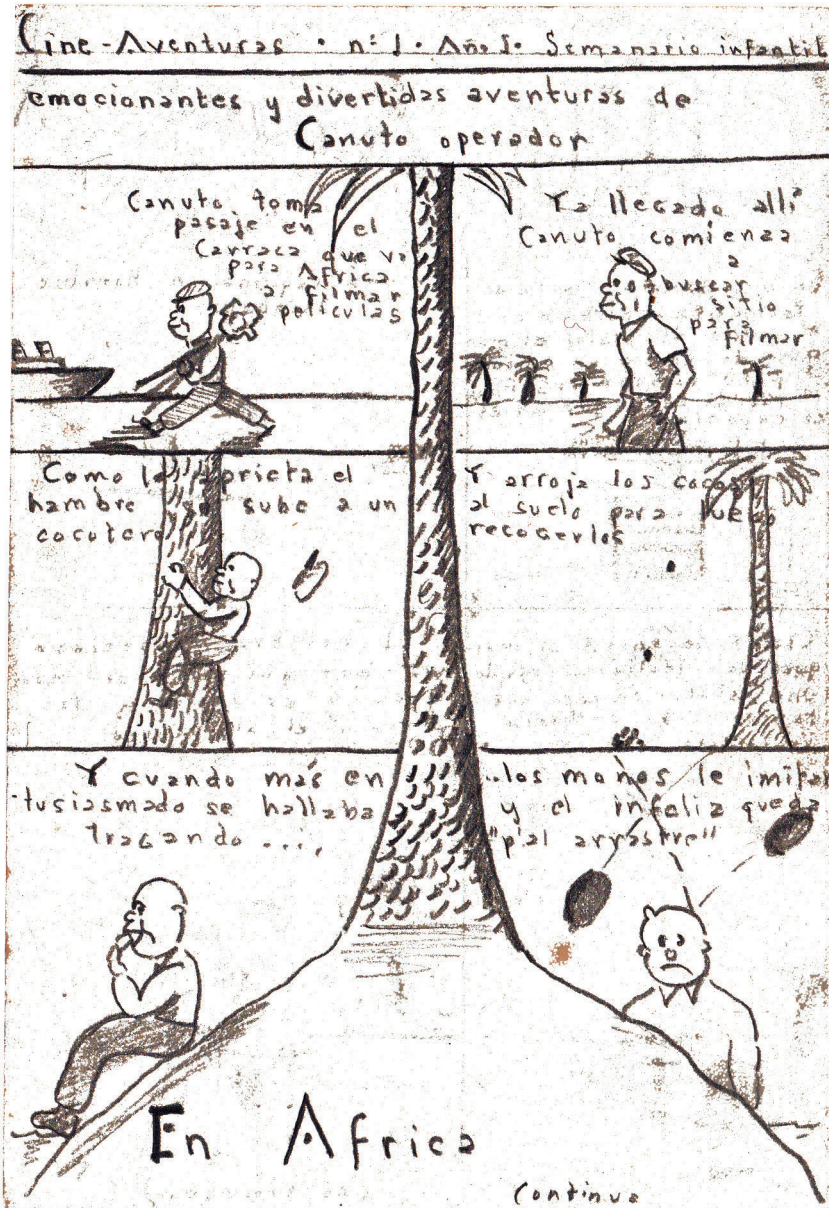 Cine-Aventuras · nº 1 · Año I · Semanario infantil
emocionantes y divertidas aventuras de
Canuto operador
Canuto toma
pasaje en el
Carraca que va
para Africa
a filmar
peliculas
Ya llegado alli
Canuto comienza
a
buscar
sitio
para
filmar
Como le aprieta el
hambre se sube a un
cocotero
Y arroja los cocos
al suelo para luego
recogerlos
Y cuando más en
tusiasmado se hallaba
tragando ...,
...los monos le imitan
y el infeliz queda
"p'al arrastre"
En Africa
Continua